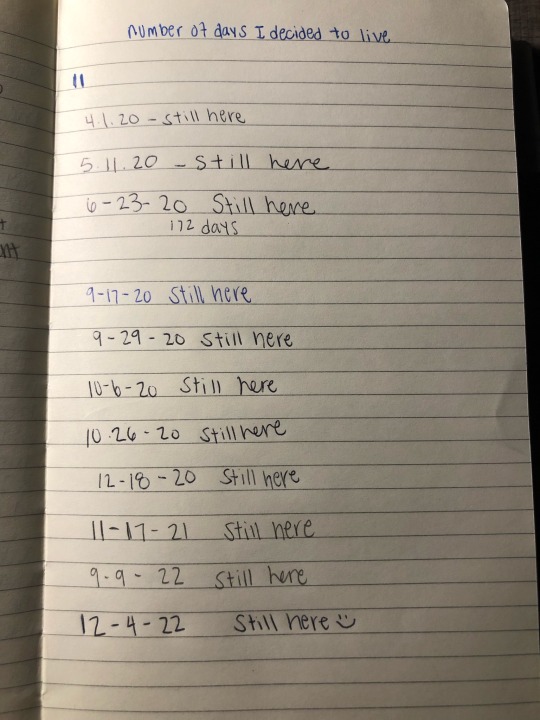 number of days I decided to live
11
4.1.20 - still here
5.11.20 - still here
6-23-20 Still here
172 days
9-17-20 Still here
9-29-20 Still here
10-6-20 Still here
10.26-20 Still here
12-18-20 Still here
11-17-21 Still here
9-9-22 Still here
12-4-22 Still here :)